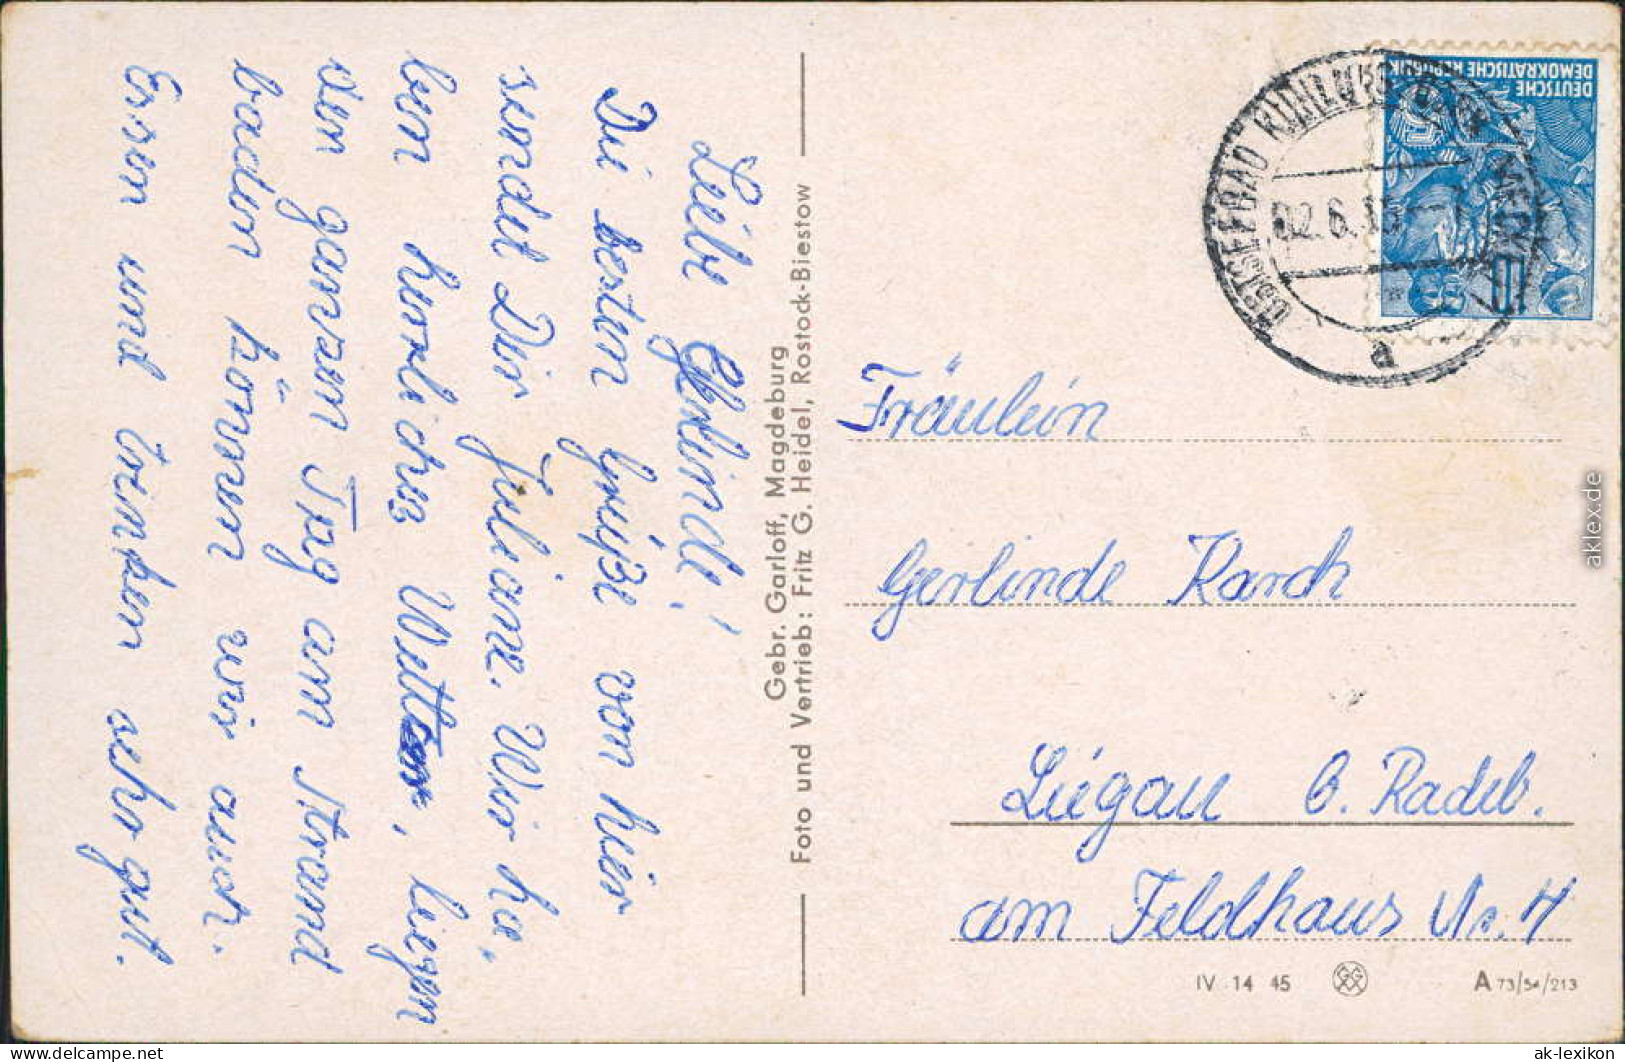 Liebe Gerlinde!
Die besten Grüße von hier
sendet Dir Juliane. Wir ha-
ben herrliches Wetter, liegen
den ganzen Tag am Strand
baden können wir auch.
Essen und trinken sehr gut.
Gebr. Garloff, Magdeburg
Foto und Vertrieb: Fritz G. Heidel, Rostock-Biestow
DEUTSCHE
DEMOKRATISCHE REPUBLIK
OSTSEEBAD KÜHLUNGSBORN
02.6.
a
Fräulein
Gerlinde Karch
Liegau b. Radeb.
am Feldhaus Nr. 4
IV 14 45
A 73/54/213
aklex.de
www.delcampe.net
ak-lexikon